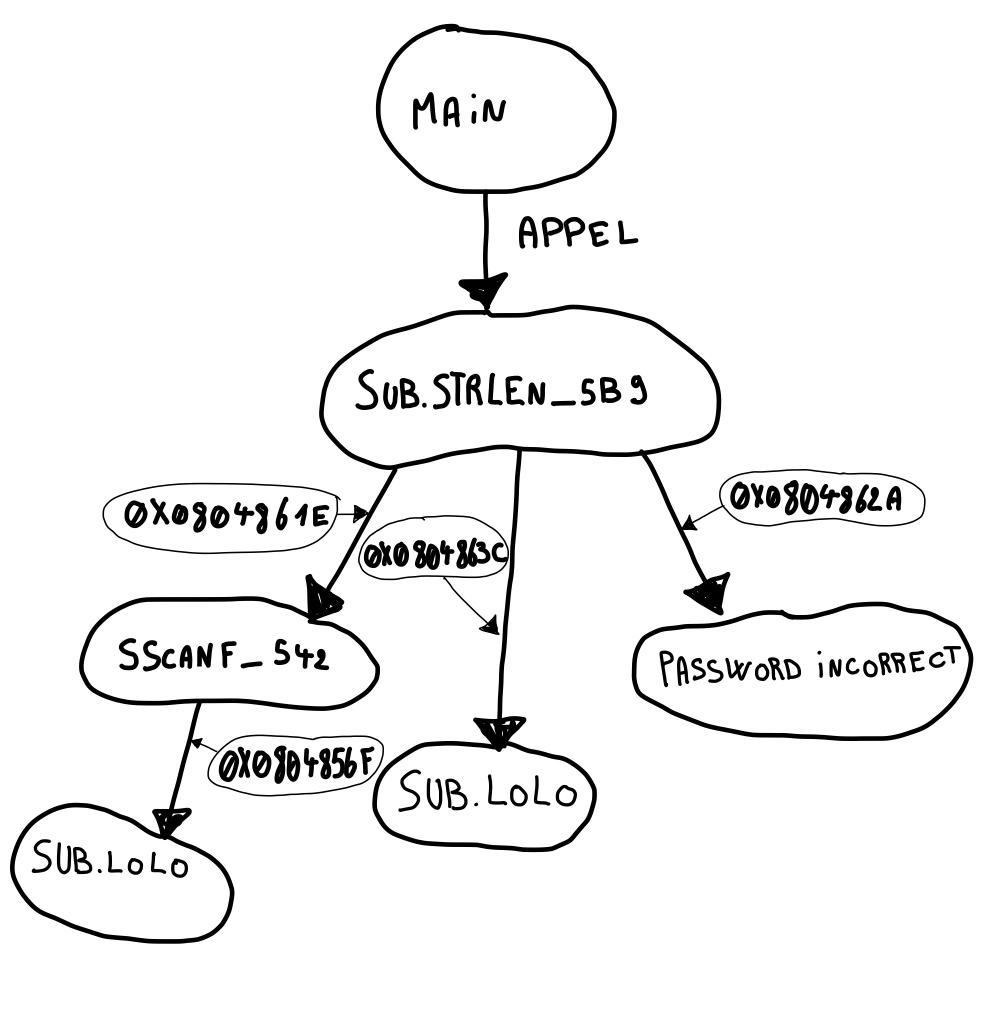 MAiN
APPEL
SUB.STRLEN_5B9
0X0804861E
0X0804862A
0X0804863C
SSCANF_542
PASSWORD iNCORRECT
0X0804856F
SUB.LOLO
SUB.LOLO